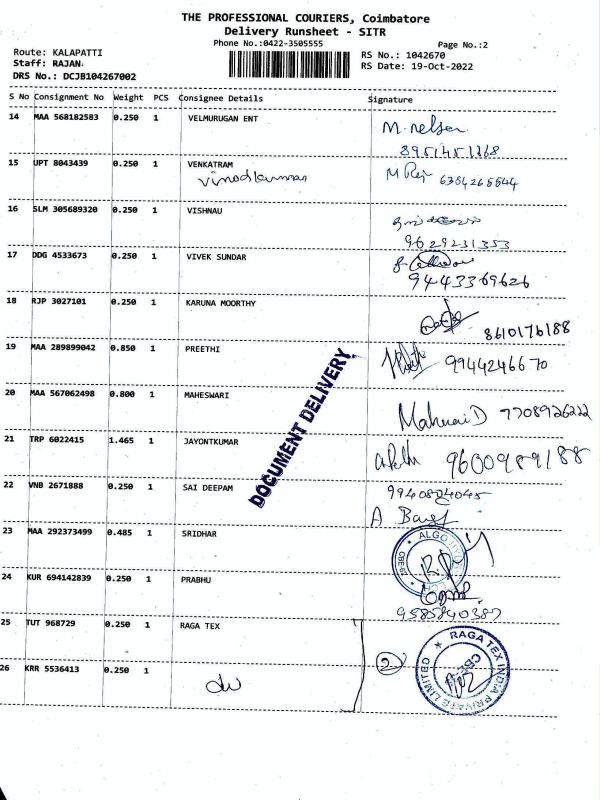 THE PROFESSIONAL COURIERS, Coimbatore
Delivery Runsheet - SITR
Phone No.:0422-3505555 Page No.:2
Route: KALAPATTI RS No.: 1042670
Staff: RAJAN RS Date: 19-Oct-2022
DRS No.: DCJB104267002
S No Consignment No Weight PCS Consignee Details Signature
14 MAA 568182583 0.250 1 VELMURUGAN ENT M. nelson
8951451368
15 UPT 8043439 0.250 1 VENKATRAM M Raj 6384265544
vinodkumar
16 SLM 305689320 0.250 1 VISHNAU
9629231353
17 DDG 4533673 0.250 1 VIVEK SUNDAR
9443369626
18 RJP 3027101 0.250 1 KARUNA MOORTHY
8610176188
19 MAA 289899042 0.850 1 PREETHI 9944246670
20 MAA 567062498 0.800 1 MAHESWARI
7708926222
21 TRP 6022415 1.465 1 JAYONTKUMAR 9600989188
22 VNB 2671888 0.250 1 SAI DEEPAM 9940804045
DOCUMENT DELIVERY
23 MAA 292373499 0.485 1 SRIDHAR
ALGO
24 KUR 694142839 0.250 1 PRABHU
9585840387
25 TUT 968729 0.250 1 RAGA TEX
26 KRR 5536413 0.250 1 2
RAGA TEX INDIA PRIVATE LIMITED
CBE